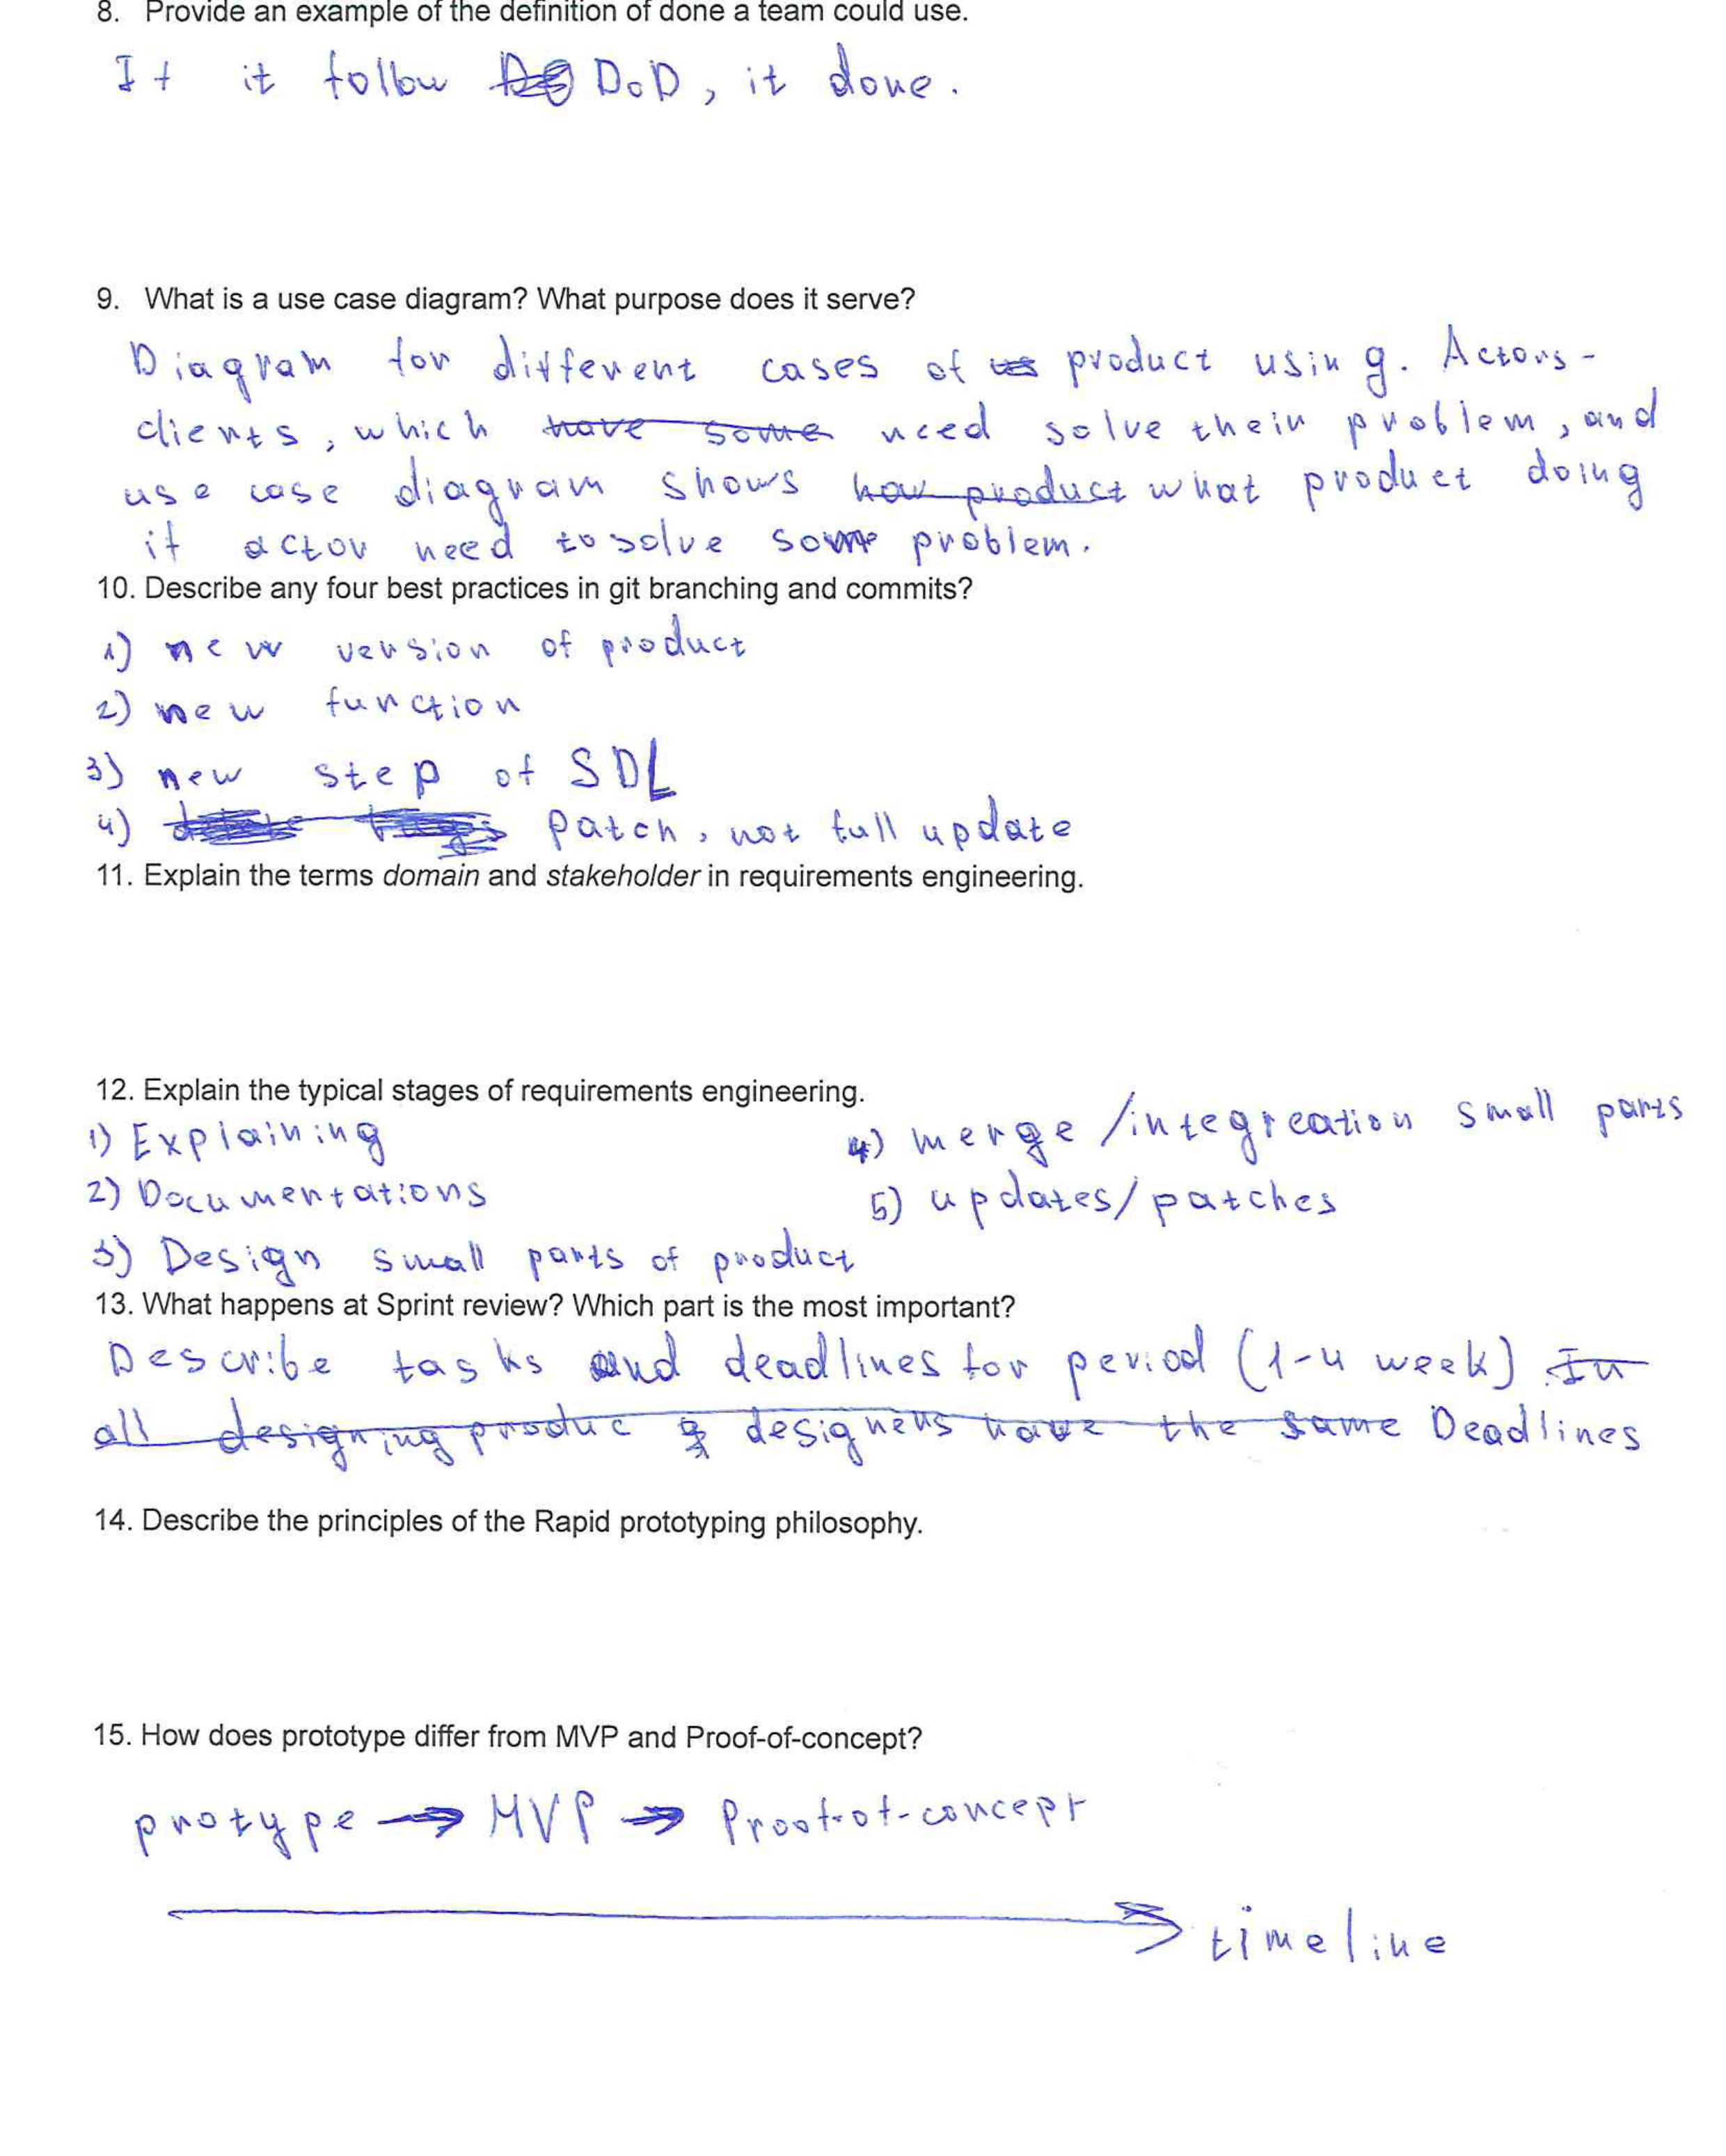 8. Provide an example of the definition of done a team could use.
If it follow DoD, it done.
9. What is a use case diagram? What purpose does it serve?
Diagram for different cases of us product using. Actors -
clients, which have some need solve thein problem, and
use case diagram shows how product what product doing
if actor need to solve some problem.
10. Describe any four best practices in git branching and commits?
1) new version of product
2) new function
3) new step of SDL
4) patch, not full update
11. Explain the terms domain and stakeholder in requirements engineering.
12. Explain the typical stages of requirements engineering.
1) Explaining
2) Documentations
3) Design small parts of product
4) merge /integreation small parts
5) updates/patches
13. What happens at Sprint review? Which part is the most important?
Describe tasks and deadlines for period (1-4 week) In
all designing produc designers have the same Deadlines
14. Describe the principles of the Rapid prototyping philosophy.
15. How does prototype differ from MVP and Proof-of-concept?
protype → MVP → Proof-of-concept
timeline